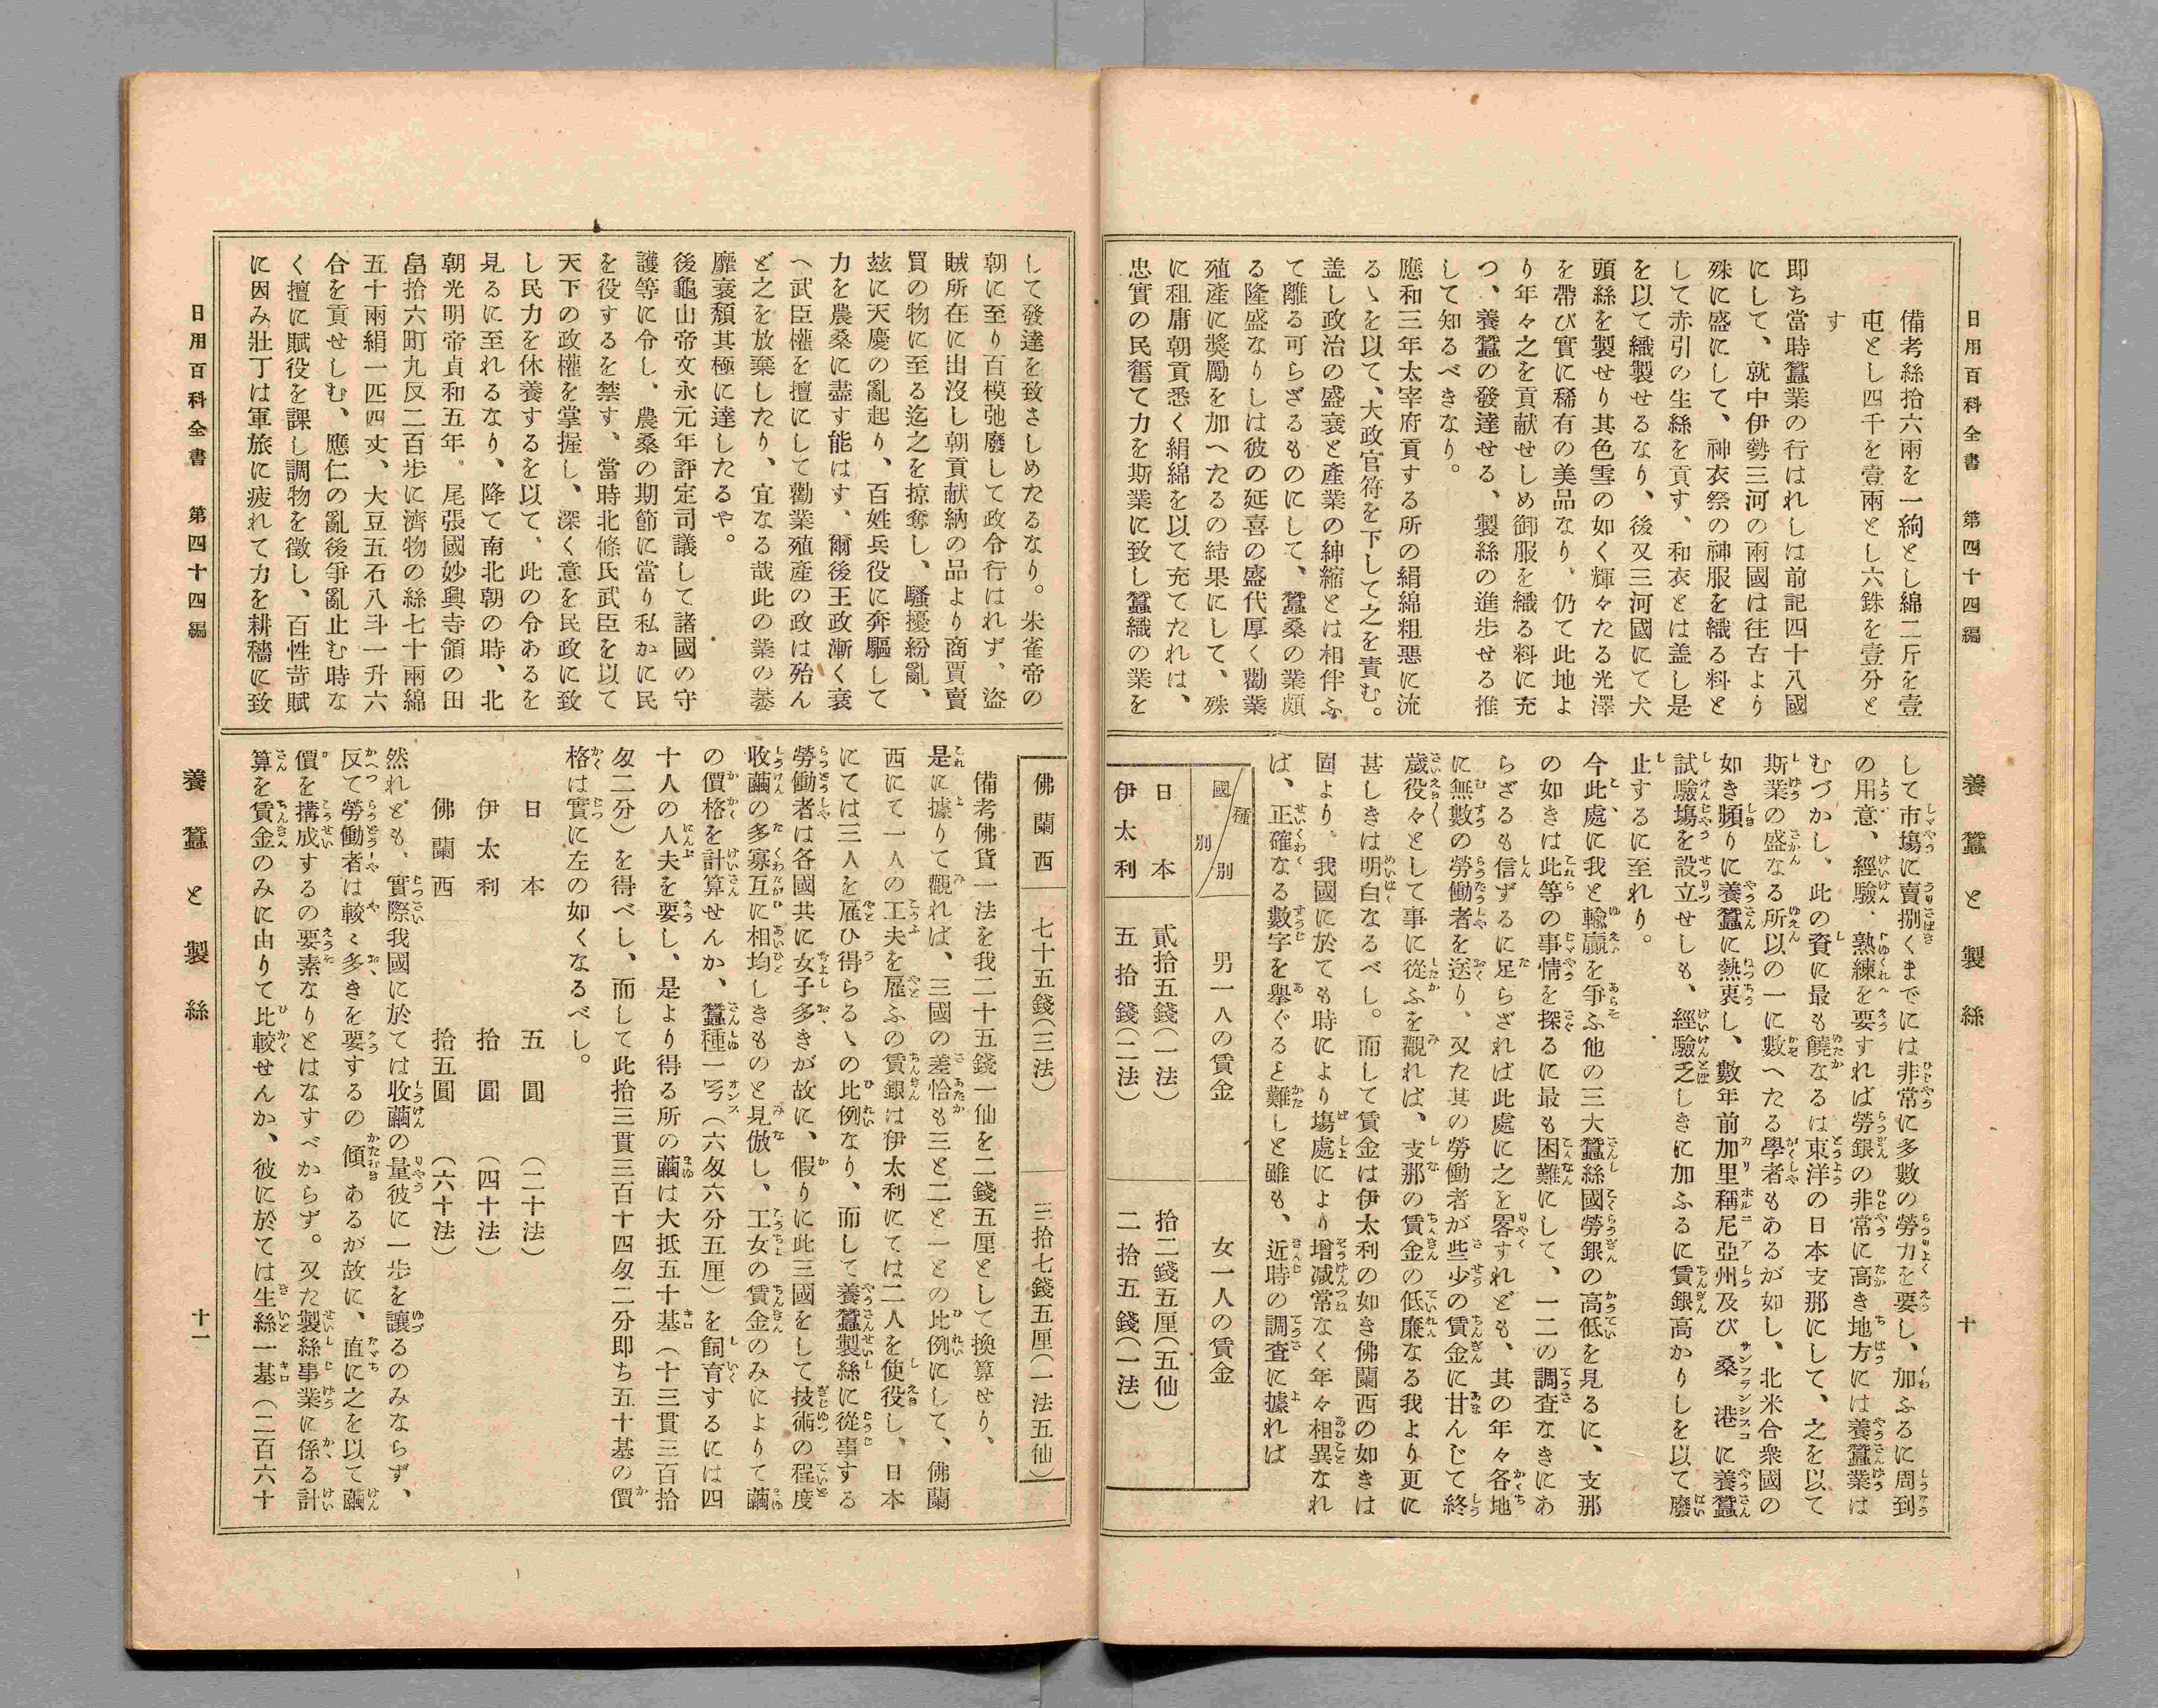 日用百科全書　第四十四編
養蠶と製絲
十
備考絲拾六兩を一絇とし綿二斤を壹
屯とし四千を壹兩とし六銖を壹分と
す
即ち當時蠶業の行はれしは前記四十八國
にして、就中伊勢三河の兩國は往古より
殊に盛にして、神衣祭の神服を織る料と
して赤引の生絲を貢す、和衣とは盖し是
を以て織製せるなり、後又三河國にて犬
頭絲を製せり其色雪の如く輝々たる光澤
を帶び實に稀有の美品なり、仍て此地よ
り年々之を貢献せしめ御服を織る料に充
つ、養蠶の發達せる、製絲の進步せる推
して知るべきなり。
應和三年太宰府貢する所の絹綿粗悪に流
るゝを以て、大政官符を下して之を責む。
盖し政治の盛衰と產業の紳縮とは相伴ふ
て離る可らざるものにして、蠶桑の業頗
る隆盛なりしは彼の延喜の盛代厚く勸業
殖產に奬勵を加へたるの結果にして、殊
に租庸朝貢悉く絹綿を以て充てたれは、
忠實の民奮て力を斯業に致し蠶織の業を
して市場に賣捌くまでには非常に多數の勞力を要し、加ふるに周到
の用意、經驗、熟練を要すれば勞銀の非常に高き地方には養蠶業は
むづかし、此の資に最も饒なるは東洋の日本支那にして、之を以て
斯業の盛なる所以の一に數へたる學者もあるが如し、北米合衆國の
如き頻りに養蠶に熱衷し、數年前加里稱尼亞州及び桑港に養蠶
試驗塲を設立せしも、經驗乏しきに加ふるに賃銀高かりしを以て廢
止するに至れり。
今此處に我と輸贏を爭ふ他の三大蠶絲國勞銀の高低を見るに、支那
の如きは此等の事情を探るに最も困難にして、一二の調査なきにあ
らざるも信ずるに足らざれば此處に之を畧すれども、其の年々各地
に無數の勞働者を送り、又た其の勞働者が些少の賃金に甘んじて終
歲役々として事に從ふを觀れば、支那の賃金の低廉なる我より更に
甚しきは明白なるべし。而して賃金は伊太利の如き佛蘭西の如きは
固より、我國に於ても時により塲處により增减常なく年々相異なれ
ば、正確なる數字を擧ぐること難しと雖も、近時の調査に據れば
國別　種別　男一人の賃金　女一人の賃金
日本　貳拾五錢（一法）　拾二錢五厘（五仙）
伊太利　五拾錢（二法）　二拾五錢（一法）
して發達を致さしめたるなり。朱雀帝の
朝に至り百模弛廢して政令行はれず、盜
賊所在に出沒し朝貢献納の品より商賈賣
買の物に至る迄之を掠奪し、騷擾紛亂、
玆に天慶の亂起り、百姓兵役に奔驅して
力を農桑に盡す能はす、爾後王政漸く衰
へ武臣權を擅にして勸業殖產の政は殆ん
ど之を放棄したり、宜なる哉此の業の萎
靡衰頽其極に達したるや。
後龜山帝文永元年評定司議して諸國の守
護等に令し、農桑の期節に當り私かに民
を役するを禁す、當時北條氏武臣を以て
天下の政權を掌握し、深く意を民政に致
し民力を休養するを以て、此の令あるを
見るに至れるなり、降て南北朝の時、北
朝光明帝貞和五年、尾張國妙興寺領の田
畠拾六町九反二百步に濟物の絲七十兩綿
五十兩絹一匹四丈、大豆五石八斗一升六
合を貢せしむ、應仁の亂後爭亂止む時な
く擅に賦役を課し調物を徵し、百性苛賦
に因み壯丁は軍旅に疲れて力を耕穡に致
佛蘭西　七十五錢（三法）　三拾七錢五厘（一法五仙）
備考佛貨一法を我二十五錢一仙を二錢五厘として換算せり、
是に據りて觀れば、三國の差恰も三と二と一との比例にして、佛蘭
西にて一人の工夫を雇ふの賃銀は伊太利にては二人を使役し、日本
にては三人を雇ひ得らるゝの比例なり、而して養蠶製絲に從事する
勞働者は各國共に女子多きが故に、假りに此三國をして技術の程度
收繭の多寡互に相均しきものと見倣し、工女の賃金のみによりて繭
の價格を計算せんか、蠶種一写（六匁六分五厘）を飼育するには四
十人の人夫を要し、是より得る所の繭は大抵五十基（十三貫三百拾
匁二分）を得べし、而して此拾三貫三百十四匁二分即ち五十基の價
格は實に左の如くなるべし。
日本　五圓　（二十法）
伊太利　拾圓　（四十法）
佛蘭西　拾五圓　（六十法）
然れども、實際我國に於ては收繭の量彼に一步を讓るのみならず、
反て勞働者は較々多きを要するの傾あるが故に、直に之を以て繭
價を搆成するの要素なりとはなすべからず。又た製絲事業に係る計
算を賃金のみに由りて比較せんか、彼に於ては生絲一基（二百六十
日用百科全書　第四十四編
養蠶と製絲
十一